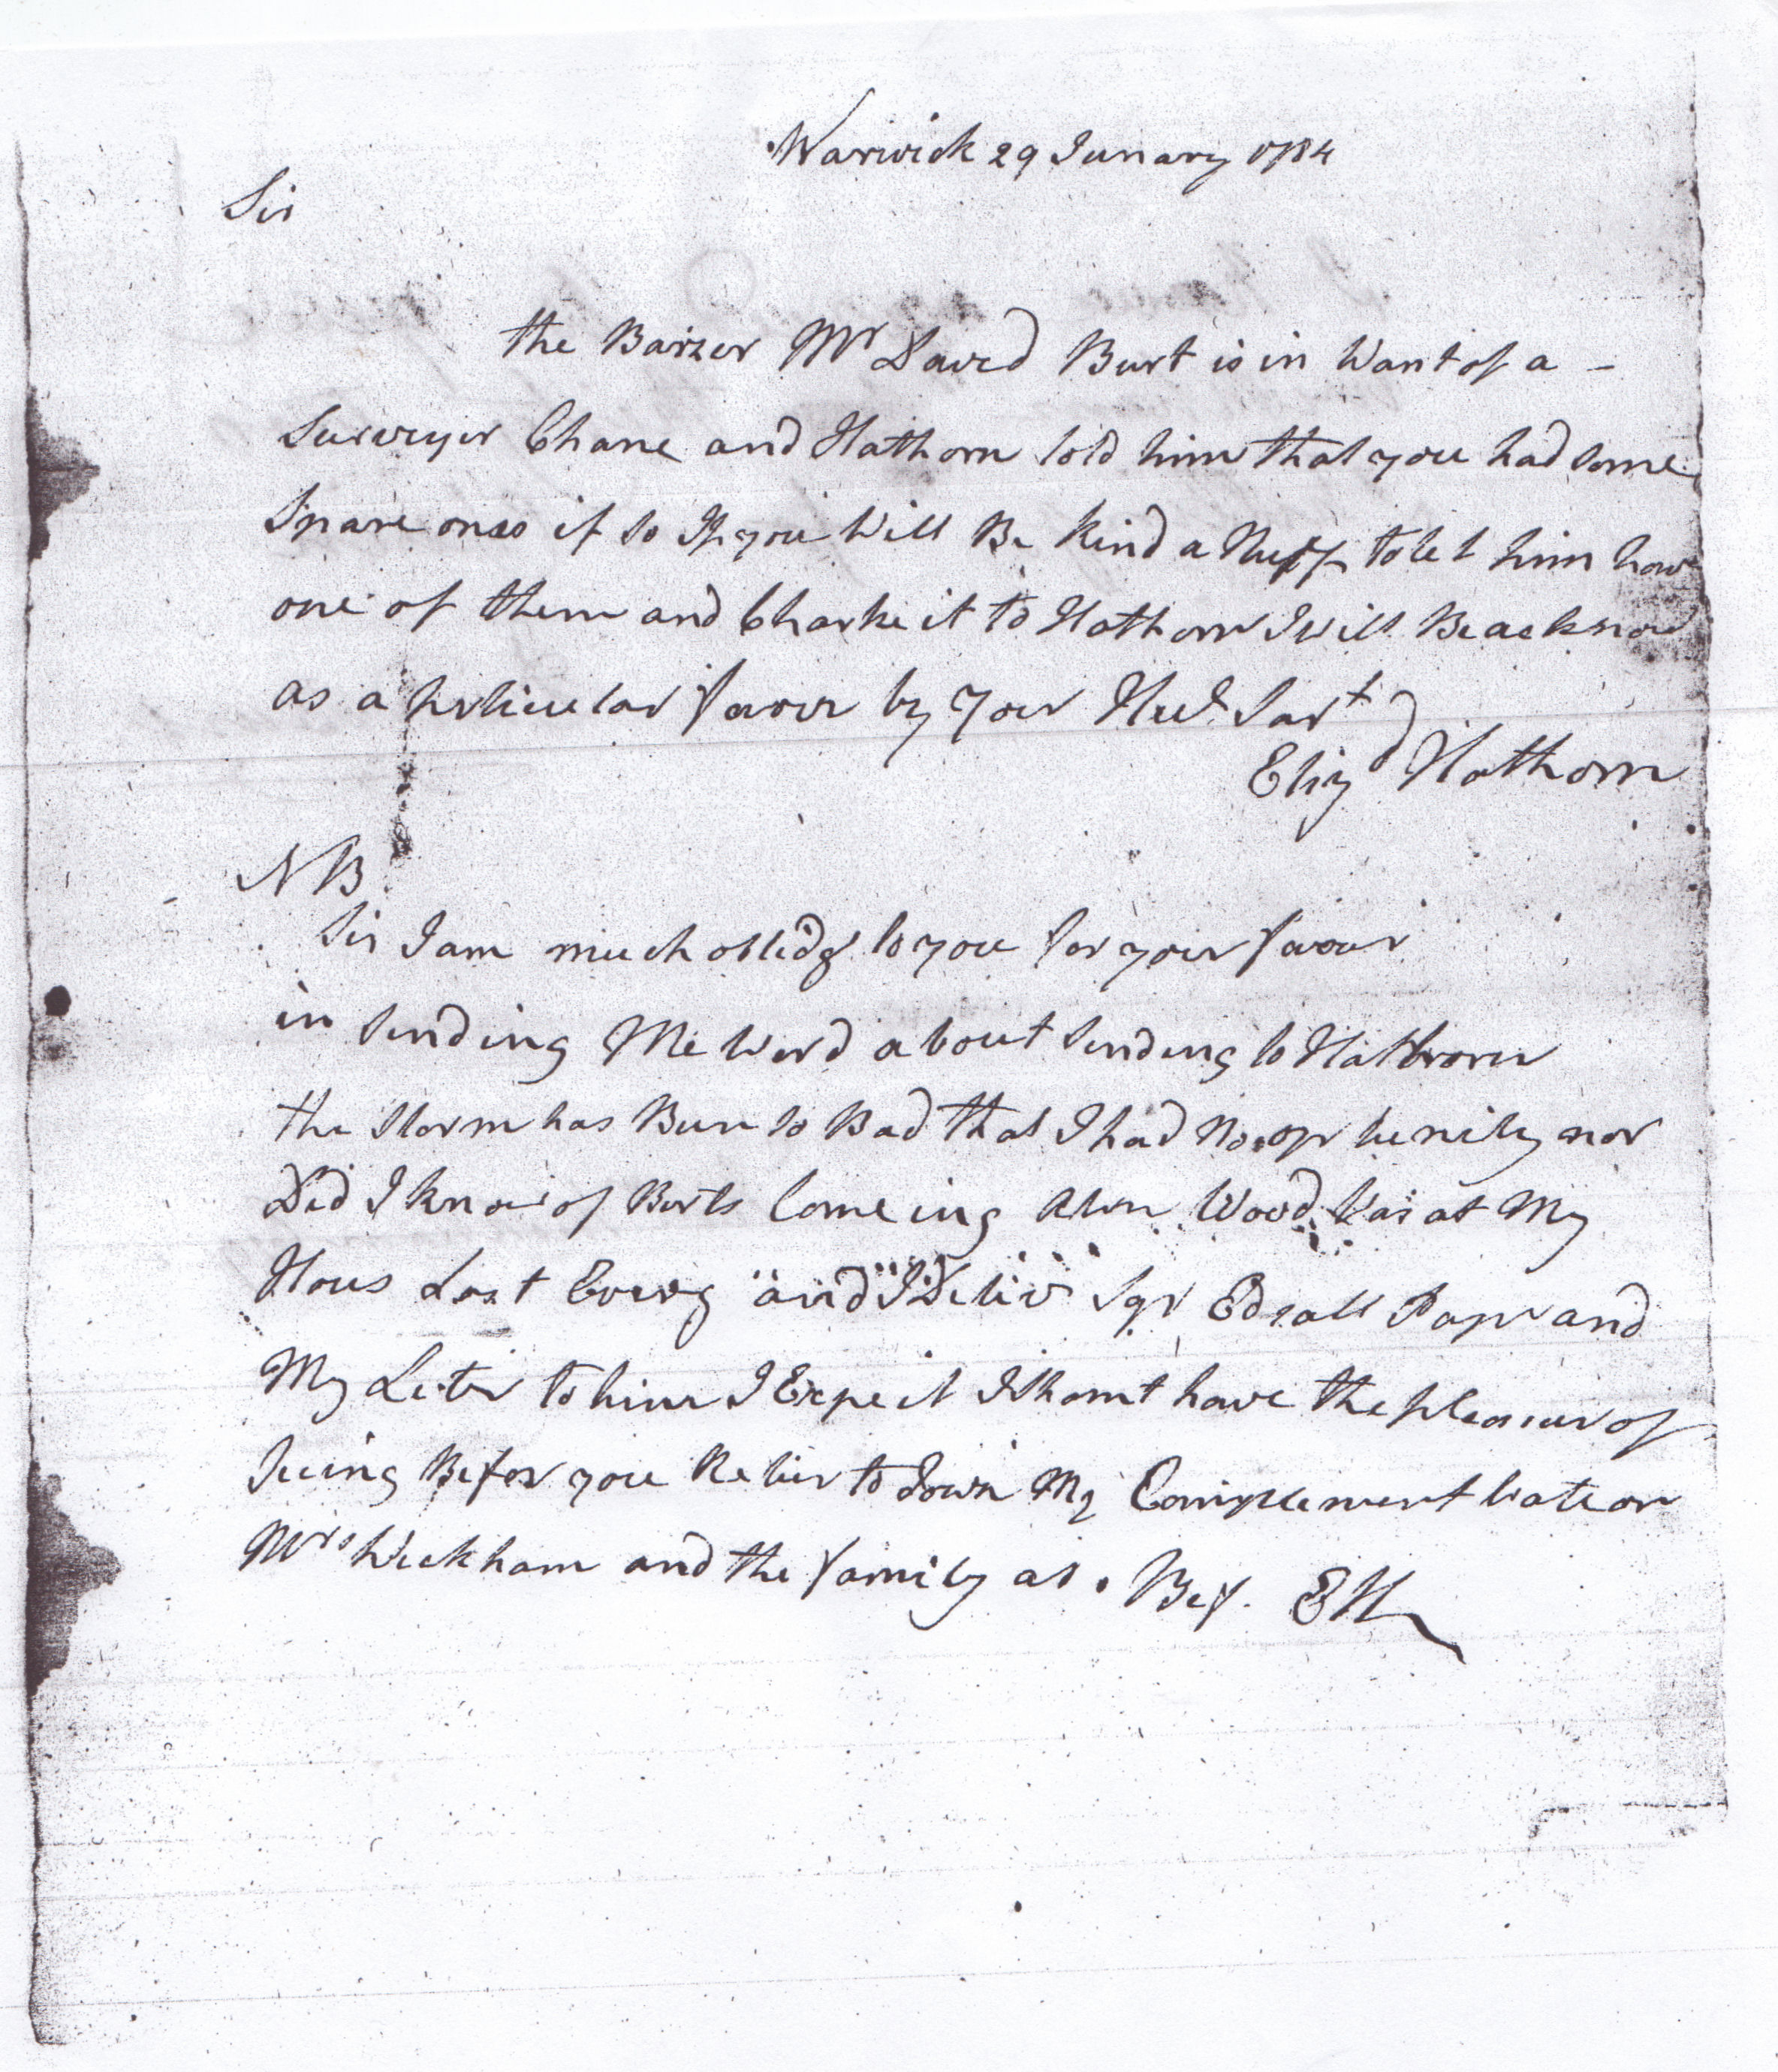 Warwick 29 Junary 1784
Sir
the Barrer Mr David Burt is in Want of a -
Surveyer Chane and Hathorn told him that you had some
Spare ones if so If you Will Be Kind a Nuff to let him have
one of them and Charke it to Hathorn I will Be acknow
as a perticular favour by your Hul Sart
Elizd Hathorn
NB
Sir I am much oblidg to you for your favour
in sending Me Word about sending to Hathorn
the storm has Been so Bad that I had No op tunity nor
Did I know of Burts Comeing Abn Wood Was at My
Hous Last Eveng and I Deliv Sqr Edsall Papr and
My Leter to him I Expect I shant have the pleasur of
seeing Befor you Return to down My Complement Wate on
Mrs Wickham and the family as Bef. EH